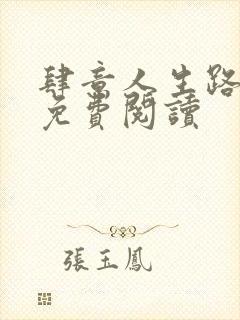 肆意人生路
免費閱讀
張玉鳳